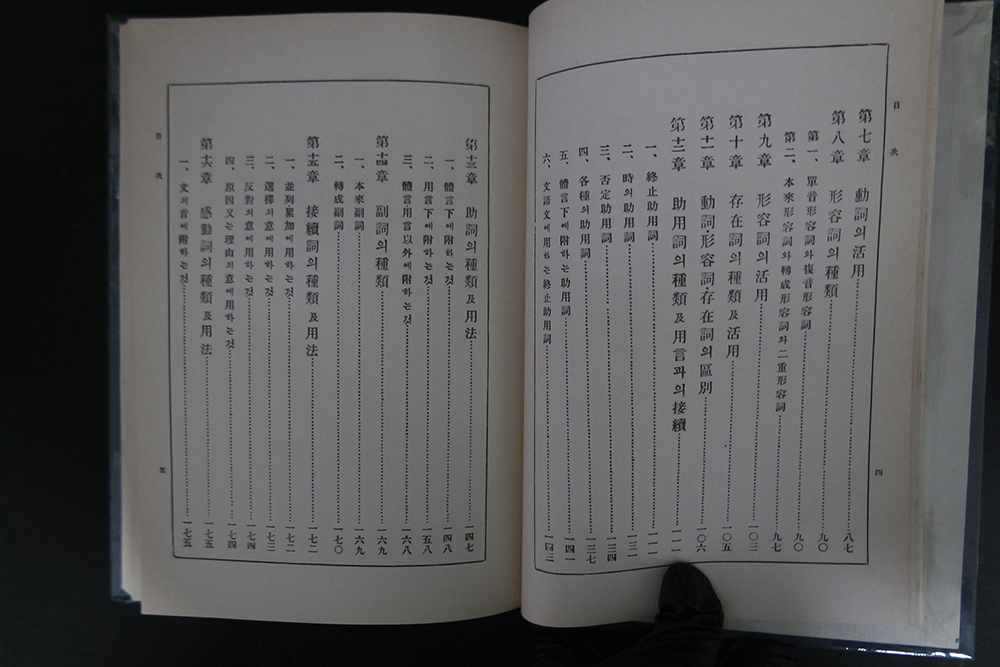 目次
第七章 動詞의活用…八七
第八章 形容詞의種類…九〇
第一、單音形容詞와複音形容詞…九〇
第二、本來形容詞와轉成形容詞와二重形容詞…九七
第九章 形容詞의活用…一〇三
第十章 存在詞의種類及活用…一〇五
第十一章 動詞形容詞存在詞의區別…一〇六
第十二章 助用詞의種類及用言과의接續…一一一
一、終止助用詞…一一一
二、時의助用詞…一三一
三、否定助用詞…一三四
四、各種의助用詞…一三七
五、體言下에附하는助用詞…一四一
六、文語文에用하는終止助用詞…一四三
四
第十三章 助詞의種類及用法…一四七
一、體言下에附하는것…一四八
二、用言下에附하는것…一五八
三、體言用言以外에附하는것…一六八
第十四章 副詞의種類…一六九
一、本來副詞…一六九
二、轉成副詞…一七〇
第十五章 接續詞의種類及用法…一七二
一、並列累加에用하는것…一七二
二、選擇의意에用하는것…一七三
三、反對의意에用하는것…一七四
四、原因又는理由의意에用하는것…一七四
第十六章 感動詞의種類及用法…一七五
一、文의言에附하는것…一七五
目次
五